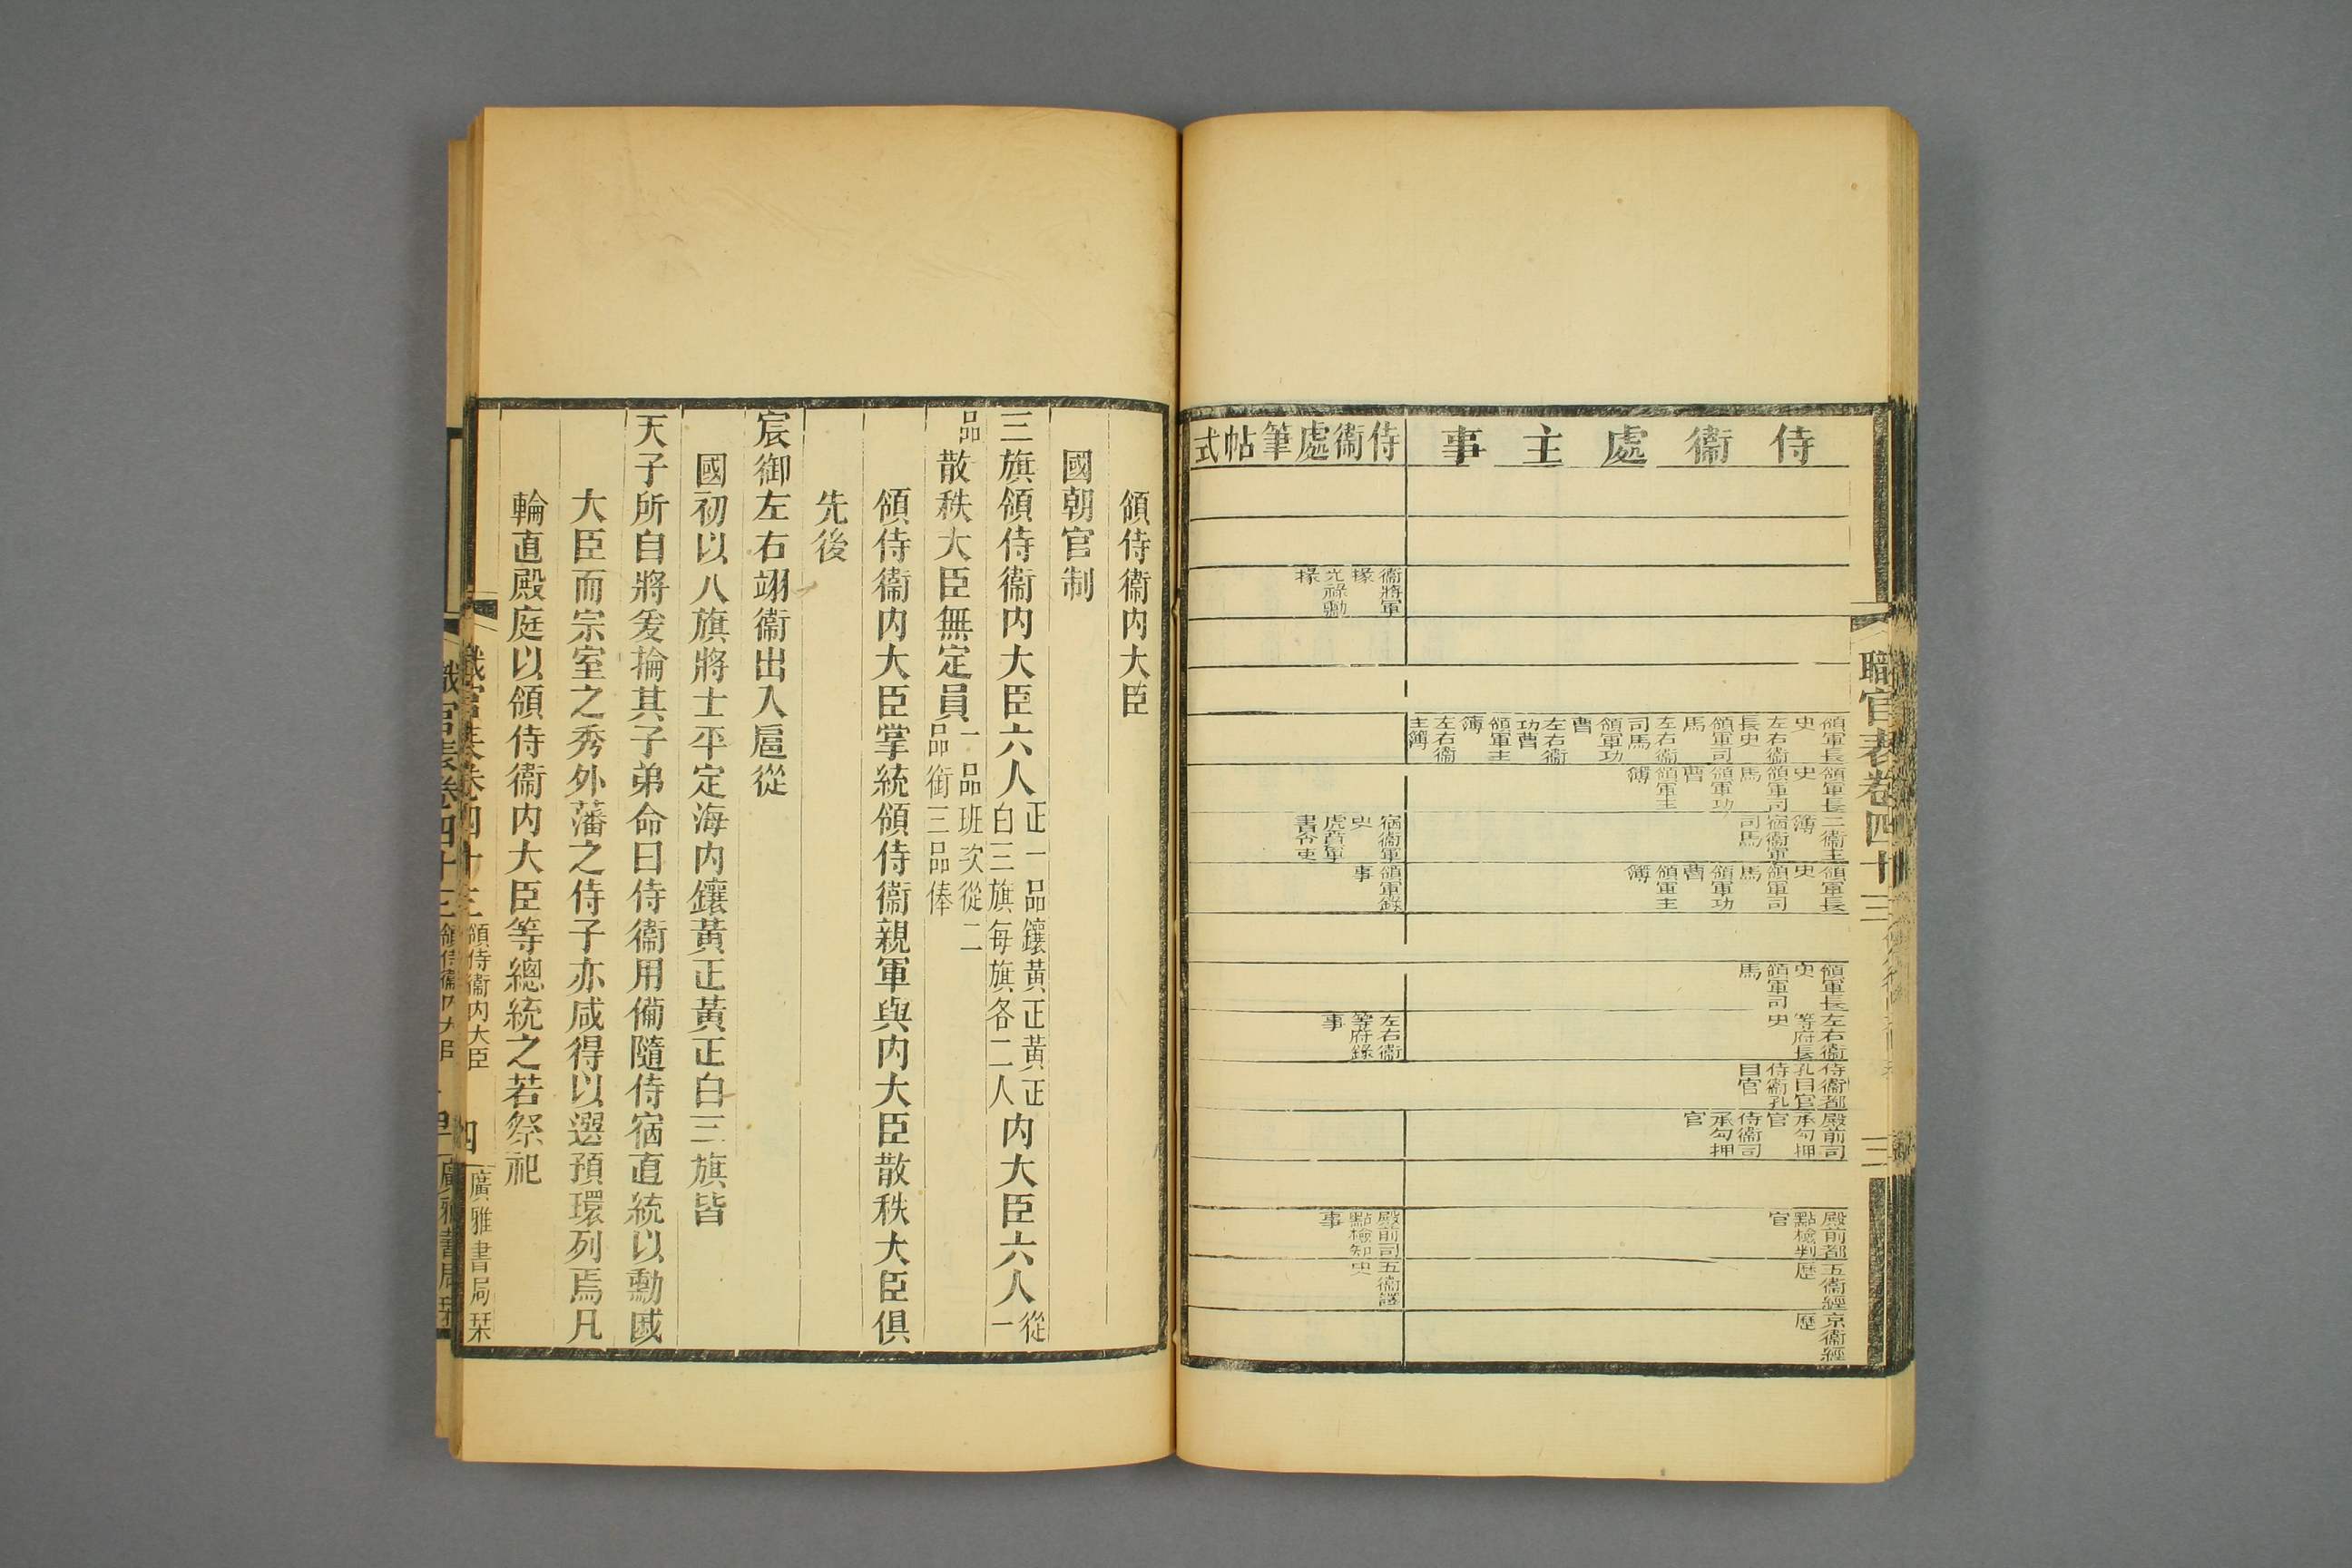 侍衞處主事
領軍長史
左右衞長史
領軍司馬
左右衞司馬
領軍功曹
左右衞功曹
領軍主簿
左右衞主簿
領軍長史
領軍司馬
領軍功曹
領軍主簿
二衞主簿
宿衞軍司馬
領軍長史
領軍司馬
領軍功曹
領軍主簿
領軍長史
領軍司馬
左右衞等府長史
侍衞都孔目官
侍衞孔目官
殿前司承勾押官
侍衞司承勾押官
殿前都點檢判官
五衞經歷
京衞經歷
侍衞處筆帖式
衞將軍掾
光祿勳掾
宿衞軍吏
虎賁軍書令吏
領軍錄事
左右衞等府錄事
殿前司點檢知事
五衞譯史
職官表卷四十三
三
領侍衞內大臣
國朝官制
三旗領侍衞內大臣六人正一品鑲黃正黃正白三旗每旗各二人內大臣六人從一
品散秩大臣無定員一品班次從二品銜三品俸
領侍衞內大臣掌統領侍衞親軍與內大臣散秩大臣俱
先後
宸御左右翊衞出入扈從
國初以八旗將士平定海內鑲黃正黃正白三旗皆
天子所自將爰掄其子弟命曰侍衞用備隨侍宿直統以勳戚
大臣而宗室之秀外藩之侍子亦咸得以選預環列焉凡
輪直殿庭以領侍衞內大臣等總統之若祭祀
職官表卷四十三 領侍衞內大臣
四
廣雅書局栞